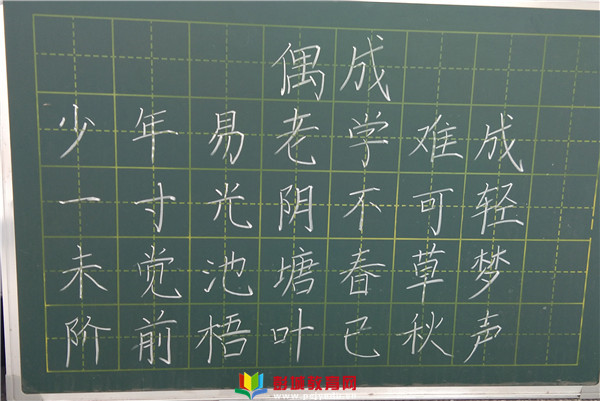 偶成
少年易老学难成
一寸光阴不可轻
未觉池塘春草梦
阶前梧叶已秋声
彭城教育网